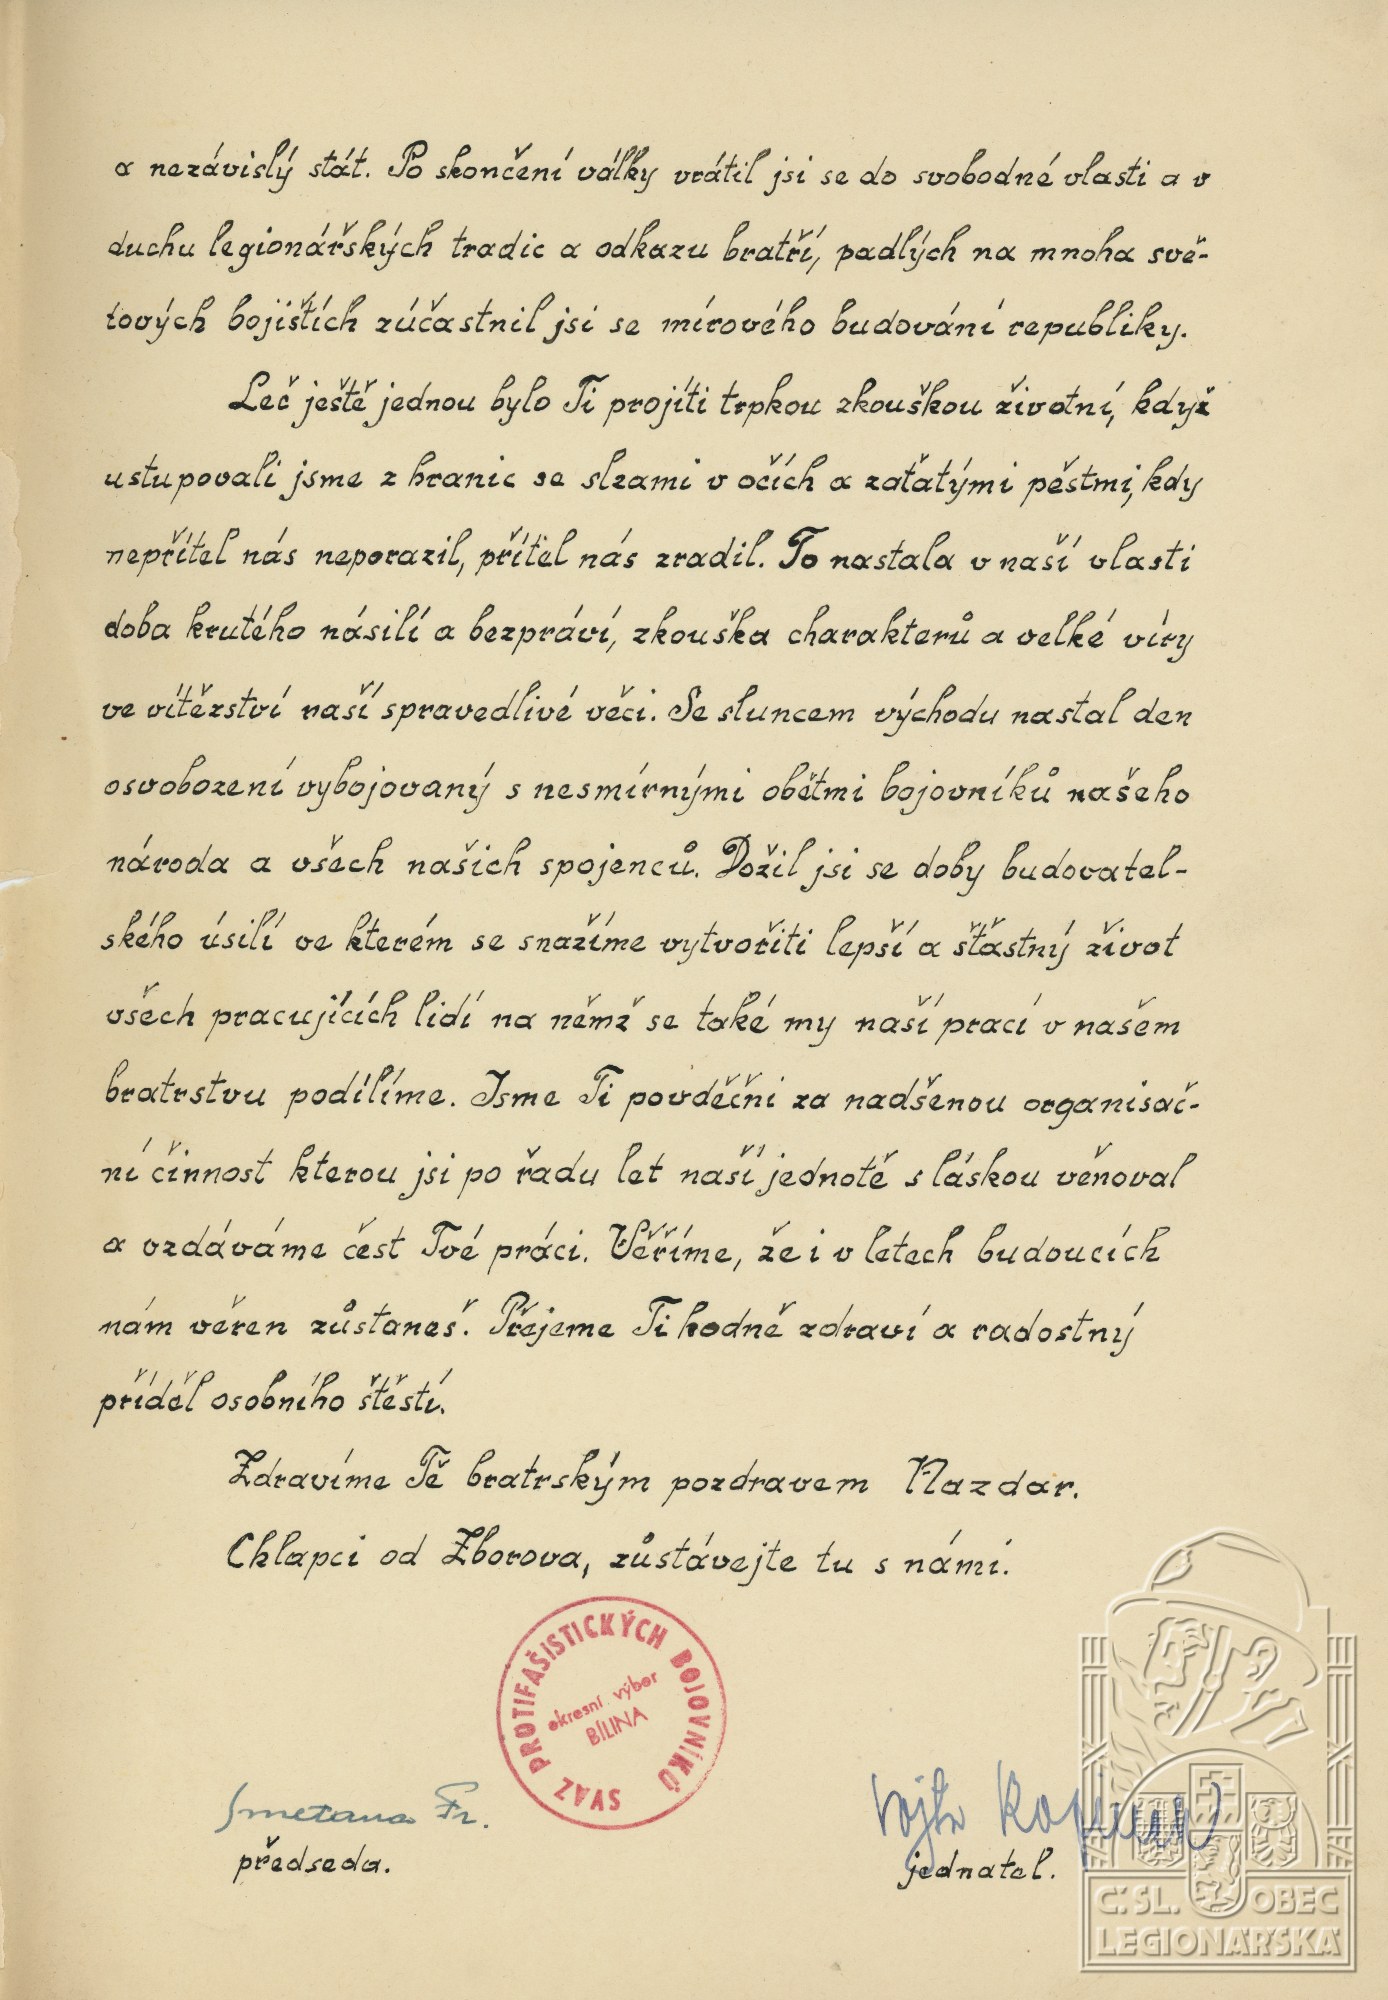 a nezávislý stát. Po skončení války vrátil jsi se do svobodné vlasti a v
duchu legionářských tradic a odkazu bratří, padlých na mnoha svě-
tových bojištích zúčastnil jsi se mírového budování republiky.
Leč ještě jednou bylo Ti projíti trpkou zkouškou životní, když
ustupovali jsme z hranic se slzami v očích a zaťatými pěstmi, kdy
nepřítel nás neporazil, přítel nás zradil. To nastala v naší vlasti
doba krutého násilí a bezpráví, zkouška charakterů a velké víry
ve vítězství naší spravedlivé věci. Se sluncem východu nastal den
osvobození vybojovaný s nesmírnými obětmi bojovníků našeho
národa a všech našich spojenců. Dožil jsi se doby budovatel-
ského úsilí ve kterém se snažíme vytvořiti lepší a šťastný život
všech pracujících lidí na němž se také my naší prací v našem
bratrstvu podílíme. Jsme Ti povděčni za nadšenou organisač-
ní činnost kterou jsi po řadu let naší jednotě s láskou věnoval
a vzdáváme čest Tvé práci. Věříme, že i v letech budoucích
nám věren zůstaneš. Přejeme Ti hodně zdraví a radostný
příděl osobního štěstí.
Zdravíme Tě bratrským pozdravem Nazdar.
Chlapci od Zborova, zůstávejte tu s námi.
SVAZ PROTIFAŠISTICKÝCH BOJOVNÍKŮ
okresní výbor
BÍLINA
Smetana Fr.
předseda.
jednatel.
ČSL. OBEC
LEGIONÁŘSKÁ